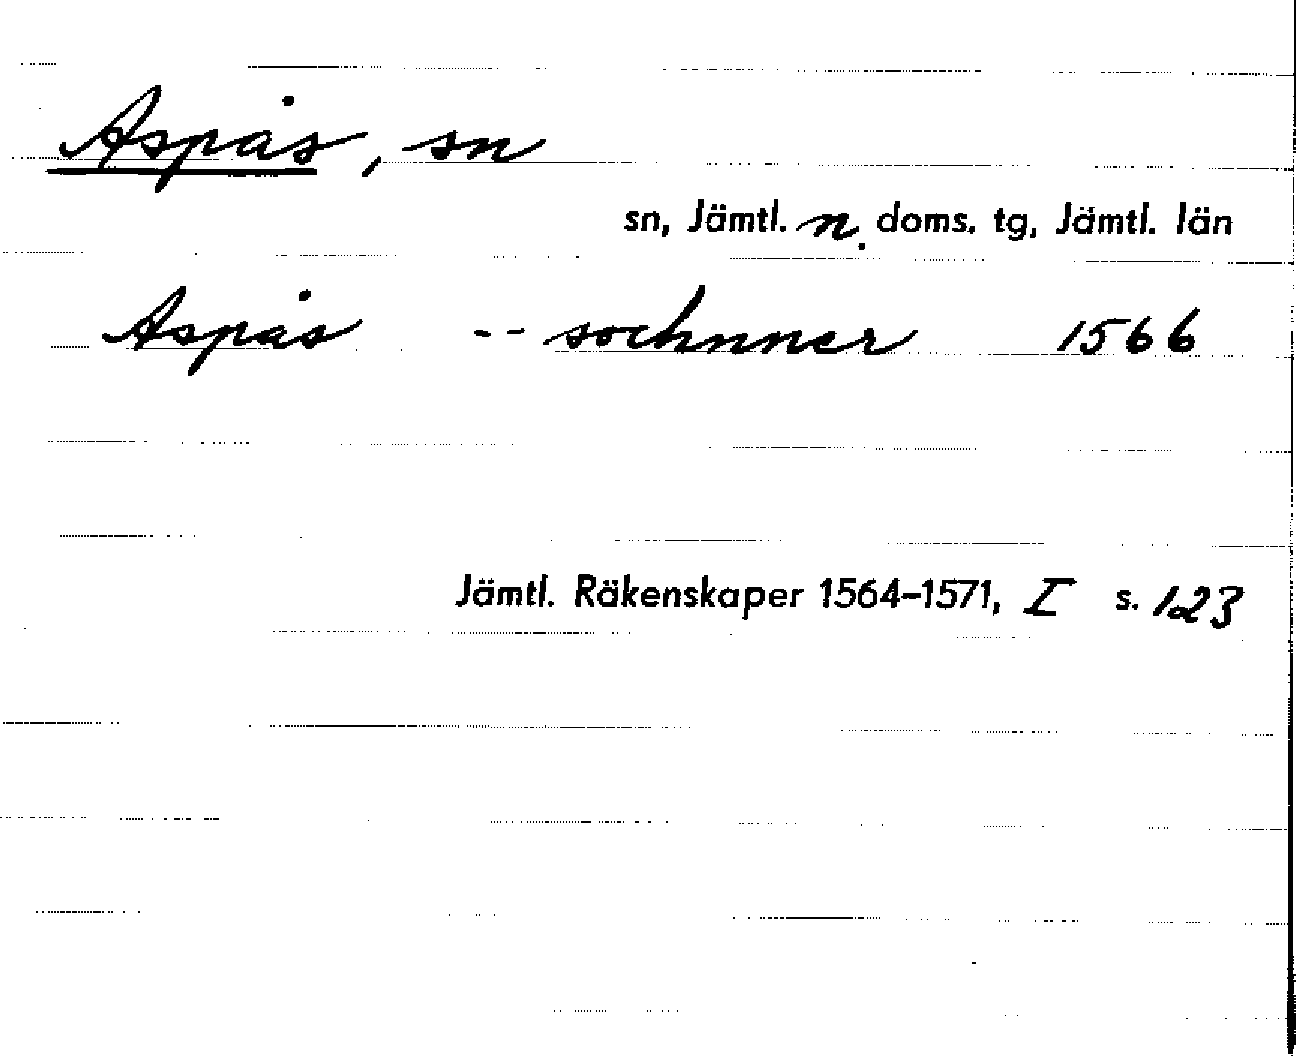 Aspås, sn
sn, Jämtl. n. doms. tg, Jämtl. län
Aspås -- sochnner 1566
Jämtl. Räkenskaper 1564–1571, I s. 123